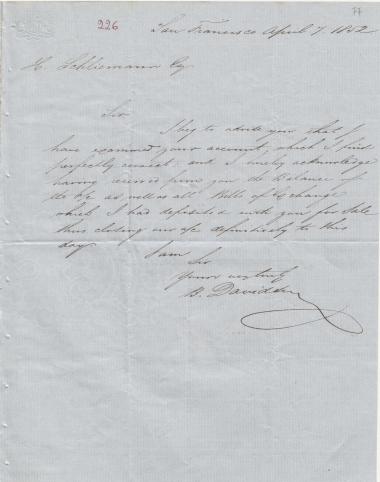 77
226 San Francisco April 7. 1852
H. Schliemann Esq
Sir
I beg to advise you that I
have examined your account, which I find
perfectly correct and I hereby acknowledge
having received from you the Balance of
the a/c as well as all Bills of Exchange
which I had deposited with you for Sale
thus closing our a/c definitively to this
day.
I am
Sir
Yours
B. Davidson